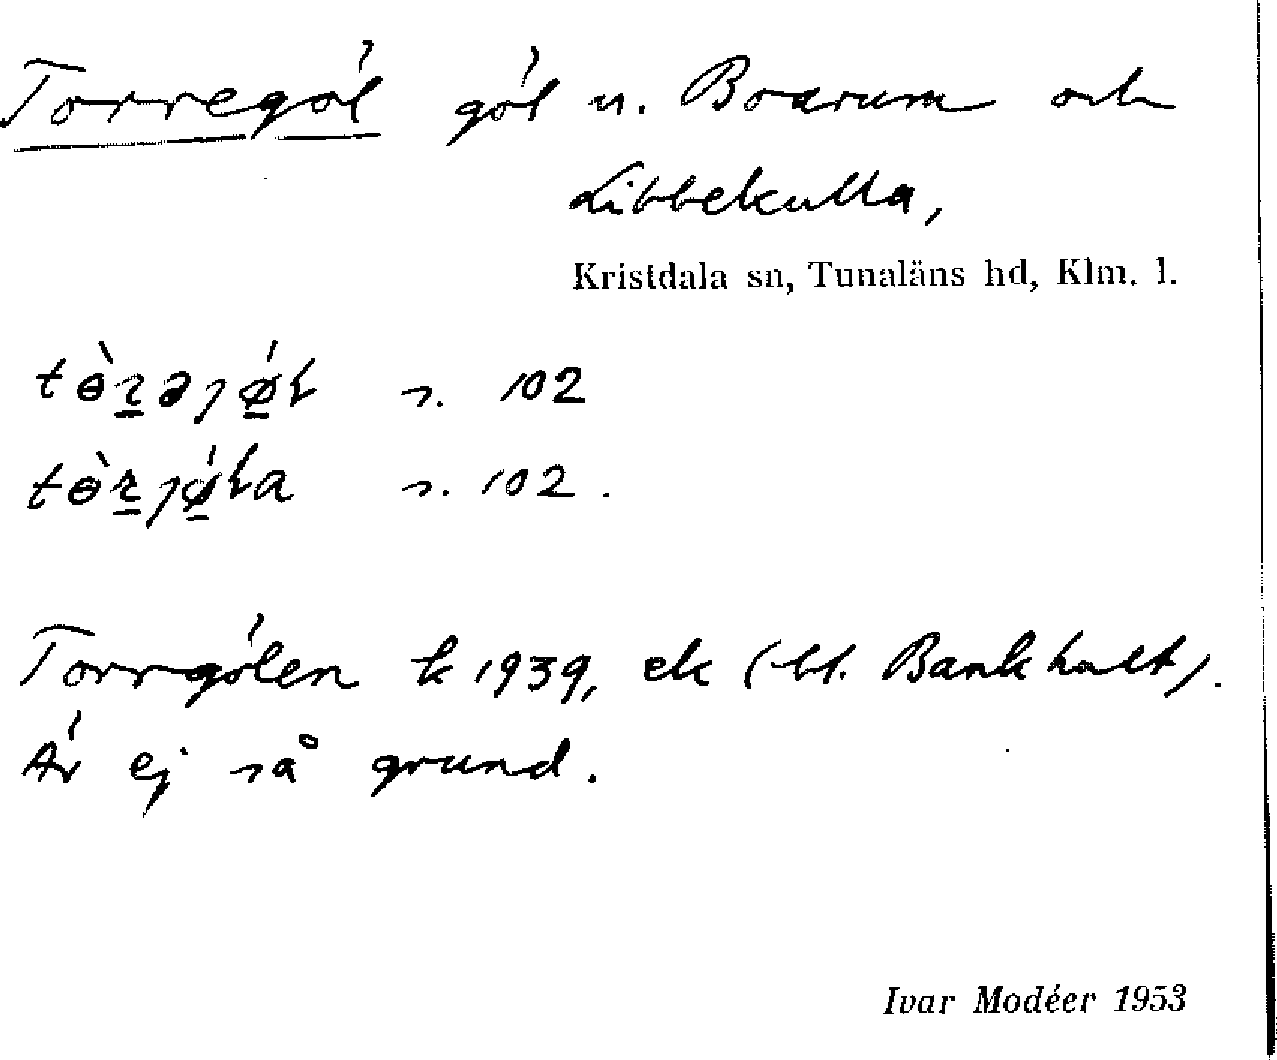 Torregöl göl u. Boarum och
Libbekulla,
Kristdala sn, Tunaläns hd, Klm. l.
s. 102
s. 102.
Torrgölen k 1939, ek (bl. Bankhult).
Är ej så grund.
Ivar Modéer 1953